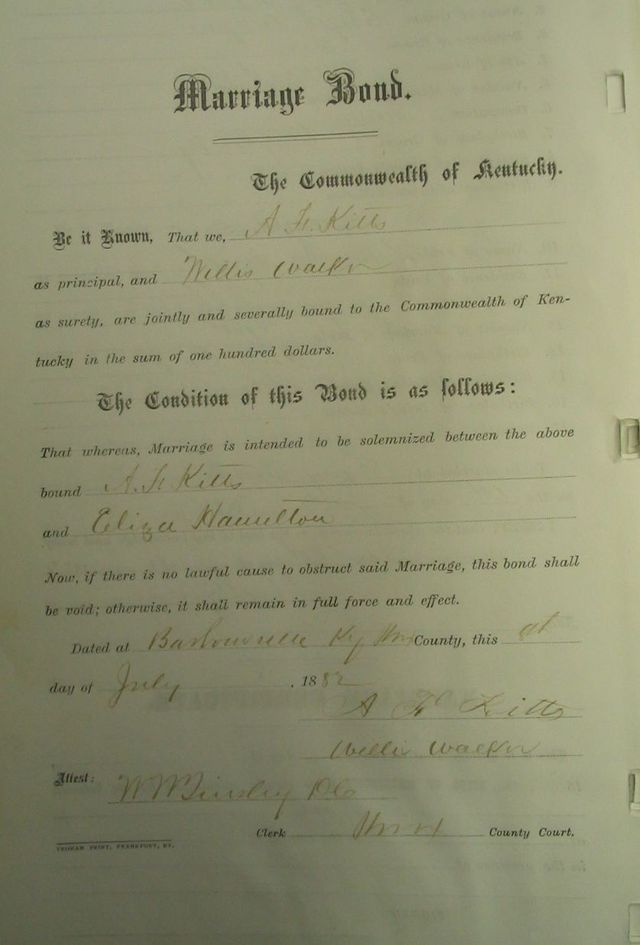 Marriage Bond.
The Commonwealth of Kentucky.
Be it Known, That we, A F Kitts
as principal, and Willis Walker
as surety, are jointly and severally bound to the Commonwealth of Ken-
tucky in the sum of one hundred dollars.
The Condition of this Bond is as follows:
That whereas, Marriage is intended to be solemnized between the above
bound A F Kitts
and Eliza Hamilton
Now, if there is no lawful cause to obstruct said Marriage, this bond shall
be void; otherwise, it shall remain in full force and effect.
Dated at Barbourville Ky Knox County, this
day of July, 1882
A F Kitts
Willis Walker
Attest: W W Tinsley
Clerk Knox County Court.
YEOMAN PRINT, FRANKFORT, KY.